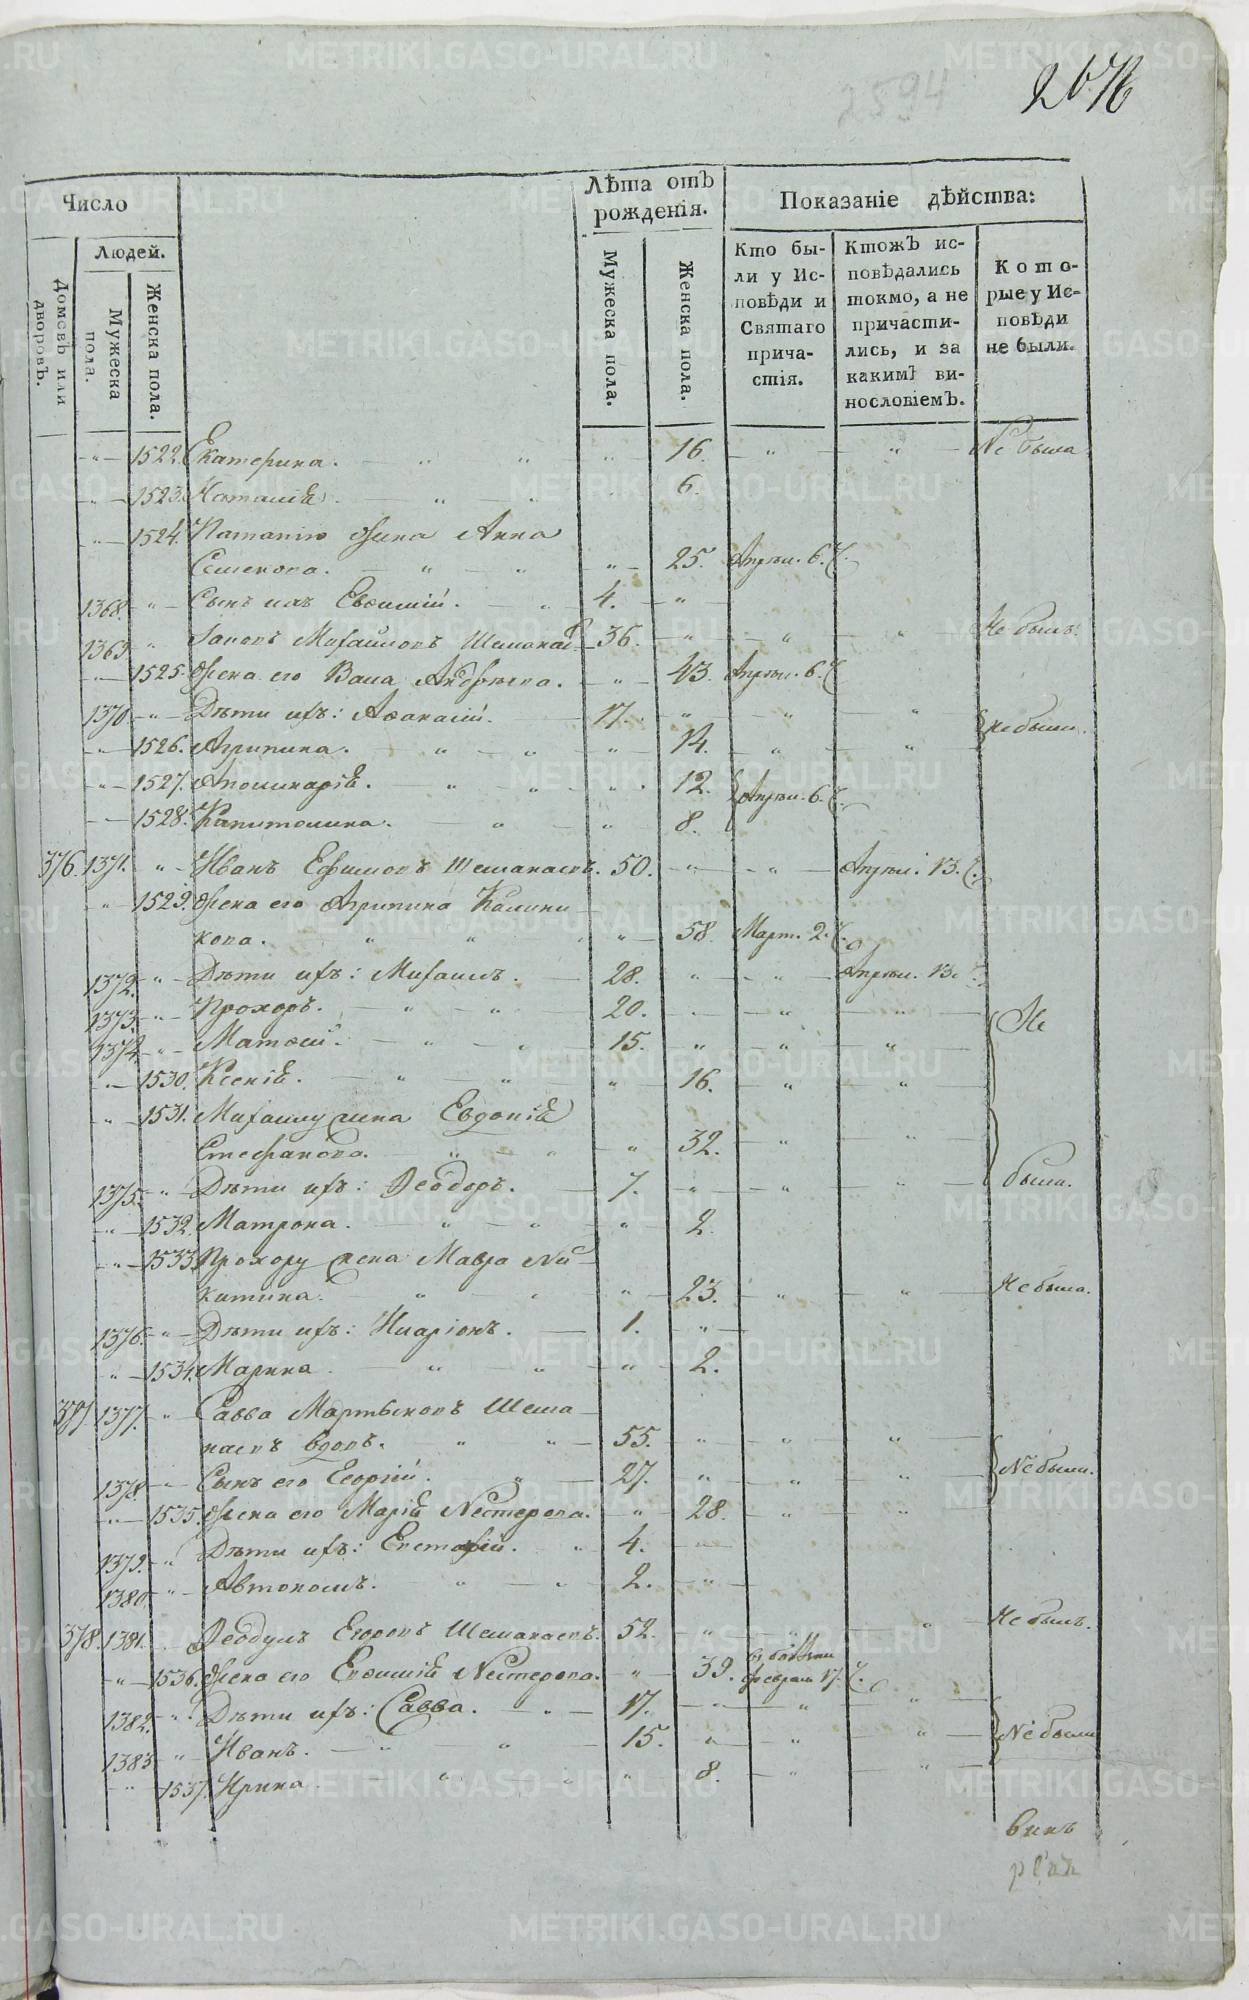 2594
Число
Лѣта отъ рожденія.
Показаніе дѣйства:
Людей.
Домовъ или дворовъ.
Мужеска пола.
Женска пола.
Мужеска пола.
Женска пола.
Кто были у Исповѣди и Святаго причастія.
Ктожъ исповѣдались токмо, а не причастились, и за какимъ винословіемъ.
Которые у Исповѣди не были.
1522. Екатерина. 16. Не была
1523. Наталія 6.
1524. жена Анна
Семенова. 25. Апрѣл. 6.
1368. Сынъ ихъ Евѳимій. 4.
1369. Михайловъ 36. Не былъ.
1525. Жена его Васса Андрѣева. 43. Апрѣл. 6.
1370 Дѣти ихъ: Аѳанасій. 17. не были.
1526. Агрипина. 14.
1527. Аполинарія. 12. Апрѣл. 6.
1528. Капитолина. 8.
376. 1371. Иванъ Ефимовъ Шеманаевъ. 50. Апрѣл. 13.
1529. Жена его Агрипина Калини
кова. 58. Март. 2.
1372. Дѣти ихъ: Михаилъ. 28. Апрѣл. 13.
1373. Прохоръ. 20. Не
1374. Матѳей. 15.
1530. Ксенія. 16.
1531. Михаилу жена Евдокія
Стефанова. 32.
1375. Дѣти ихъ: Ѳеодоръ. 7. были.
1532. Матрона. 2
1533. Прохору жена Мавра Ни
китина. 23. Не была.
1376. Дѣти ихъ: Иларіонъ. 1.
1534. Марина 2.
377. 1377. Савва Мартыновъ Шема
наевъ вдовъ. 55.
1378. Сынъ его Георгій. 27. Не были.
1535. Жена его Марія Нестерова. 28.
1379. Дѣти ихъ: Евстафій. 4.
1380. Автономъ. 2.
378. 1381. Ѳеодулъ Егоровъ Шеманаевъ. 52. Не былъ.
1536. Жена его Евѳимія Нестерова. 39. Феврал. 17.
1382. Дѣти ихъ: Савва. 17.
1383 Иванъ. 15. Не были
1537. Ирина 8.